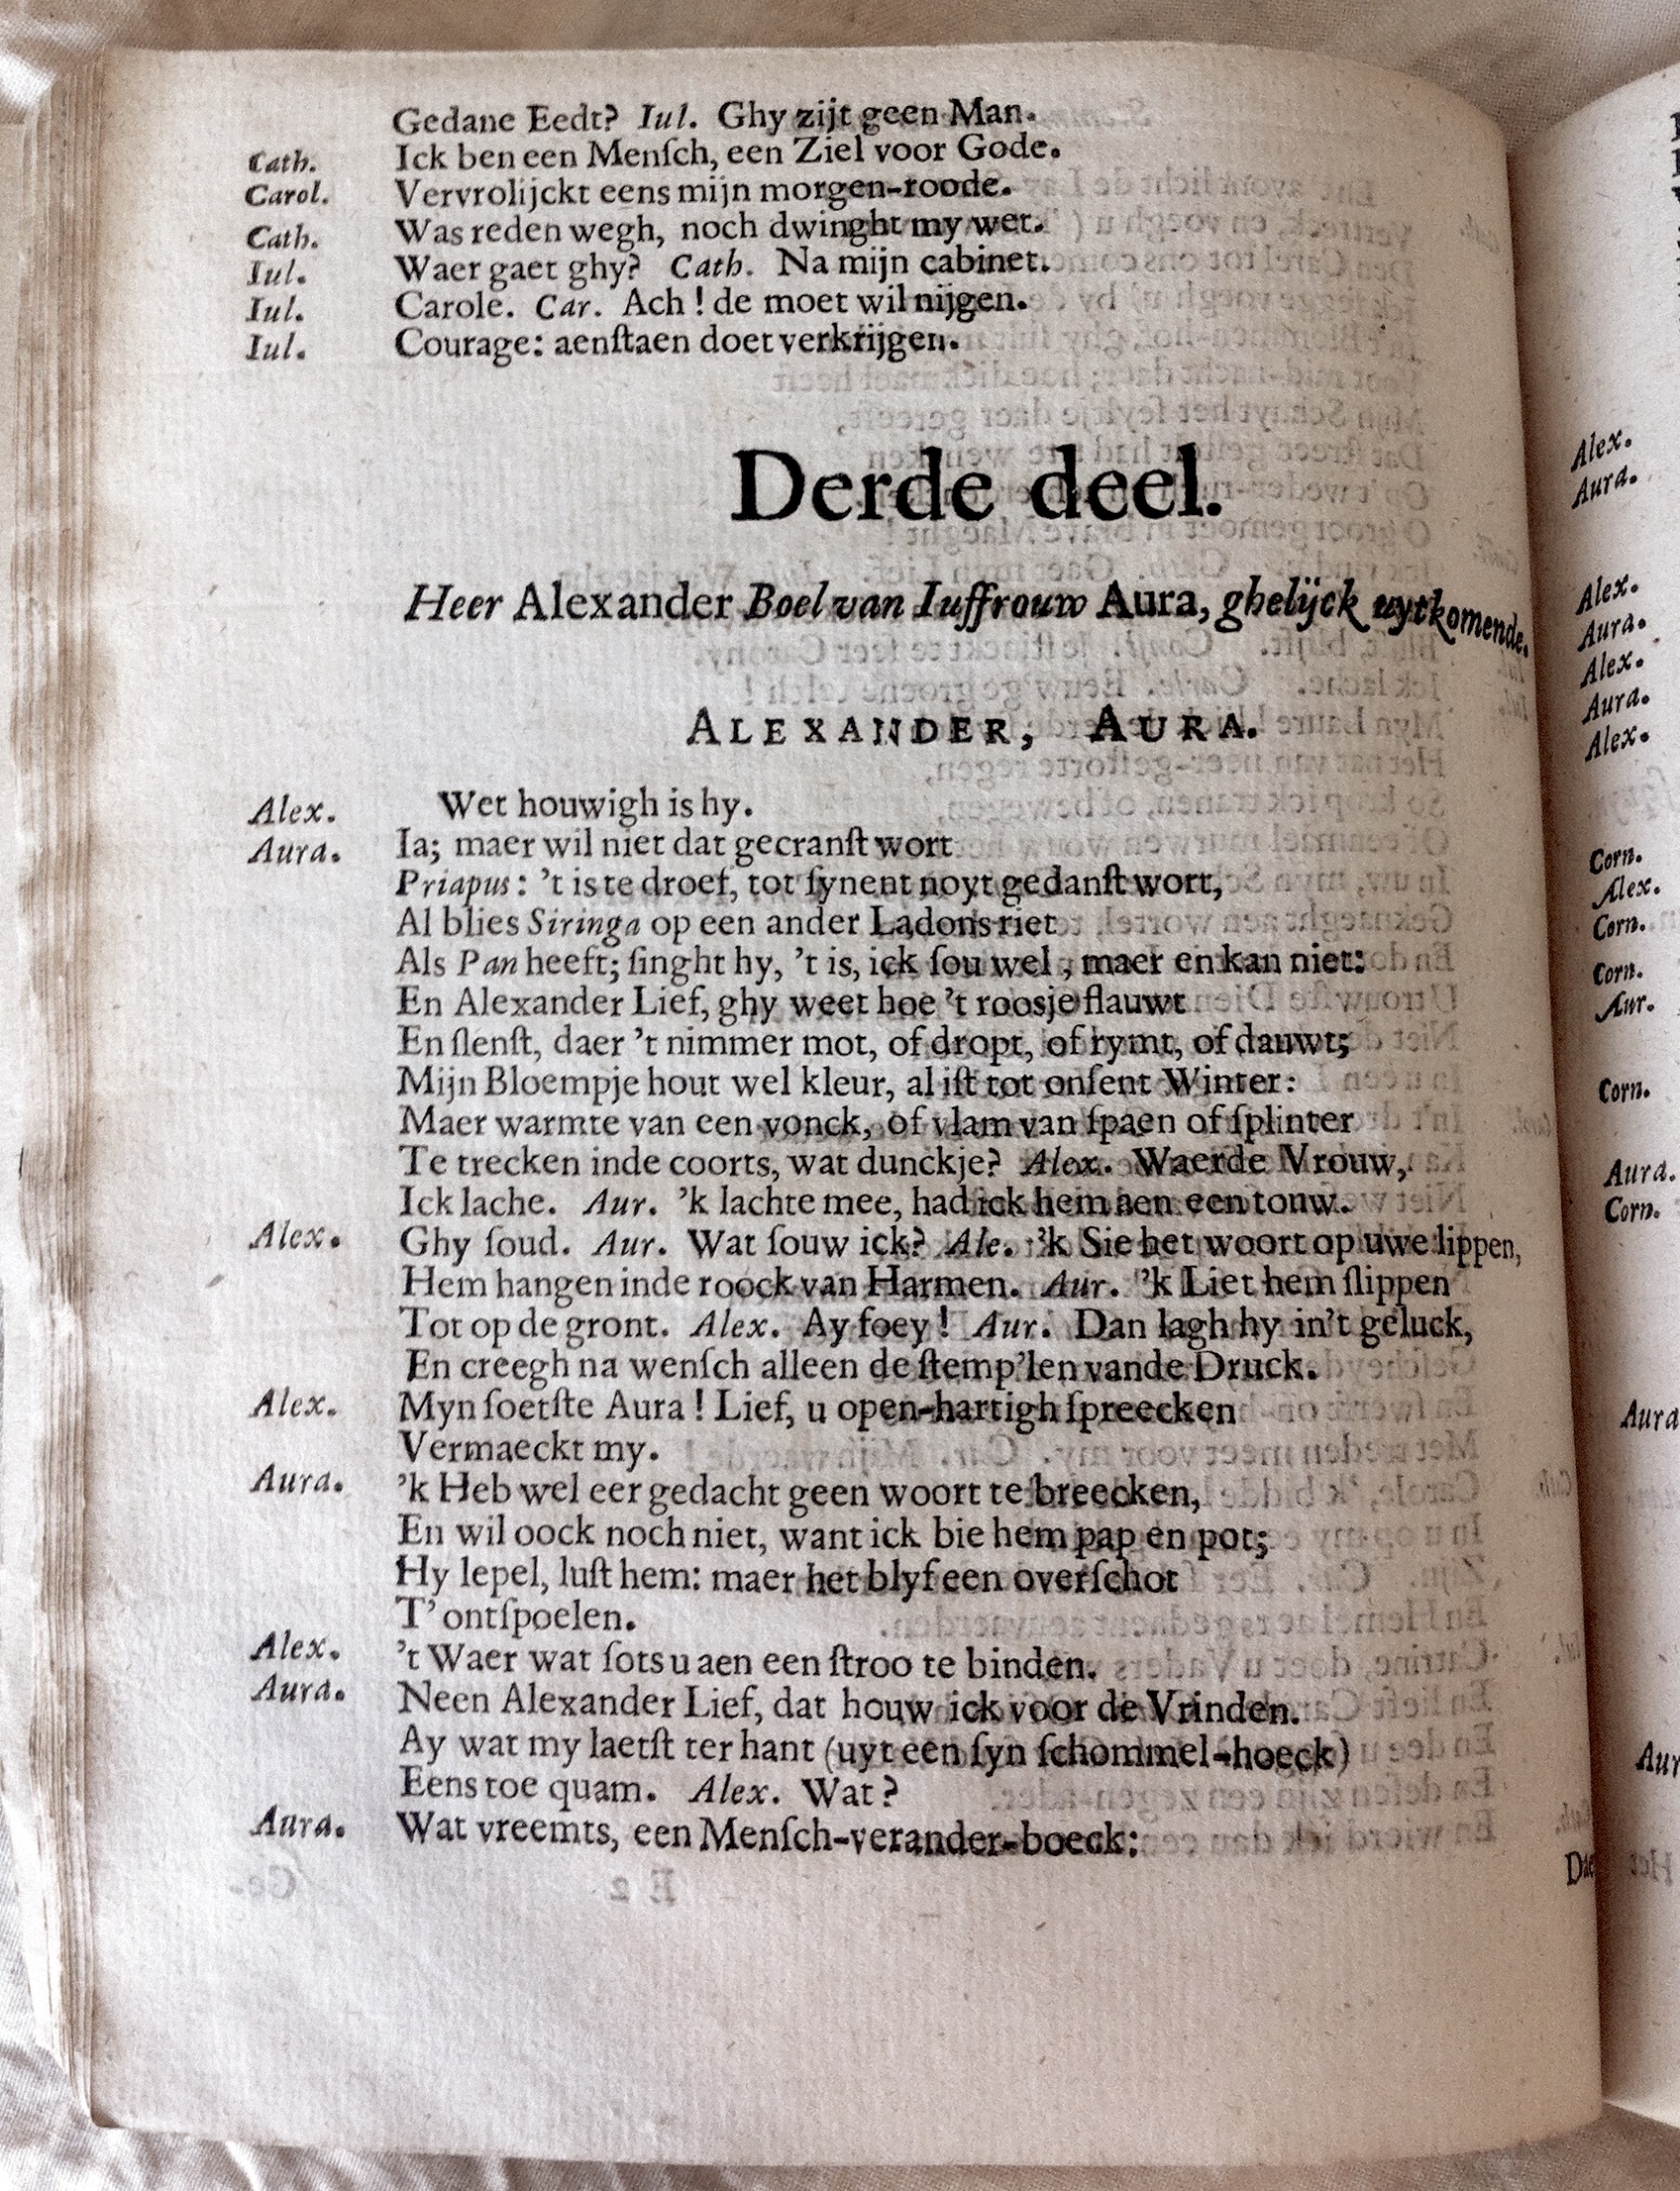 Gedane Eedt? Iul. Ghy zijt geen Man.
Cath. Ick ben een Menſch, een Ziel voor Gode.
Carol. Vervrolijckt eens mijn morgen-roode.
Cath. Was reden wegh, noch dwinght my wet.
Iul. Waer gaet ghy? Cath. Na mijn cabinet.
Iul. Carole. Car. Ach! de moet wil nijgen.
Iul. Courage: aenſtaen doet verkrijgen.
Derde deel.
Heer Alexander Boel van Iuffrouw Aura, ghelijck uytkomende.
ALEXANDER, AURA.
Alex. Wet houwigh is hy.
Aura. Ia; maer wil niet dat gecranſt wort
Priapus: 't is te droef, tot ſynent noyt gedanſt wort,
Al blies Siringa op een ander Ladons riet
Als Pan heeft; ſinght hy, 't is, ick ſou wel, maer en kan niet:
En Alexander Lief, ghy weet hoe 't roosje flauwt
En ſlenſt, daer 't nimmer mot, of dropt, of rymt, of dauwt;
Mijn Bloempje hout wel kleur, al iſt tot onſent Winter:
Maer warmte van een vonck, of vlam van ſpaen of ſplinter
Te trecken inde coorts, wat dunckje? Alex. Waerde Vrouw,
Ick lache. Aur. 'k lachte mee, had ick hem aen een touw.
Alex. Ghy ſoud. Aur. Wat ſouw ick? Ale. 'k Sie het woort op uwe lippen,
Hem hangen inde roock van Harmen. Aur. 'k Liet hem ſlippen
Tot op de gront. Alex. Ay foey! Aur. Dan lagh hy in't geluck,
En creegh na wenſch alleen de ſtemp'len vande Druck.
Alex. Myn ſoetſte Aura! Lief, u open-hartigh ſpreecken
Vermaeckt my.
Aura. 'k Heb wel eer gedacht geen woort te breecken,
En wil oock noch niet, want ick bie hem pap en pot;
Hy lepel, luſt hem: maer het blyf een overſchot
T' ontſpoelen.
Alex. 't Waer wat ſots u aen een ſtroo te binden.
Aura. Neen Alexander Lief, dat houw ick voor de Vrinden.
Ay wat my laetſt ter hant (uyt een ſyn ſchommel-hoeck)
Eens toe quam. Alex. Wat?
Aura. Wat vreemts, een Menſch-verander-boeck:
Alex.
Aura.
Alex.
Aura.
Alex.
Aura.
Alex.
Corn.
Alex.
Corn.
Corn.
Aur.
Corn.
Aura.
Corn.
Aura
Aur